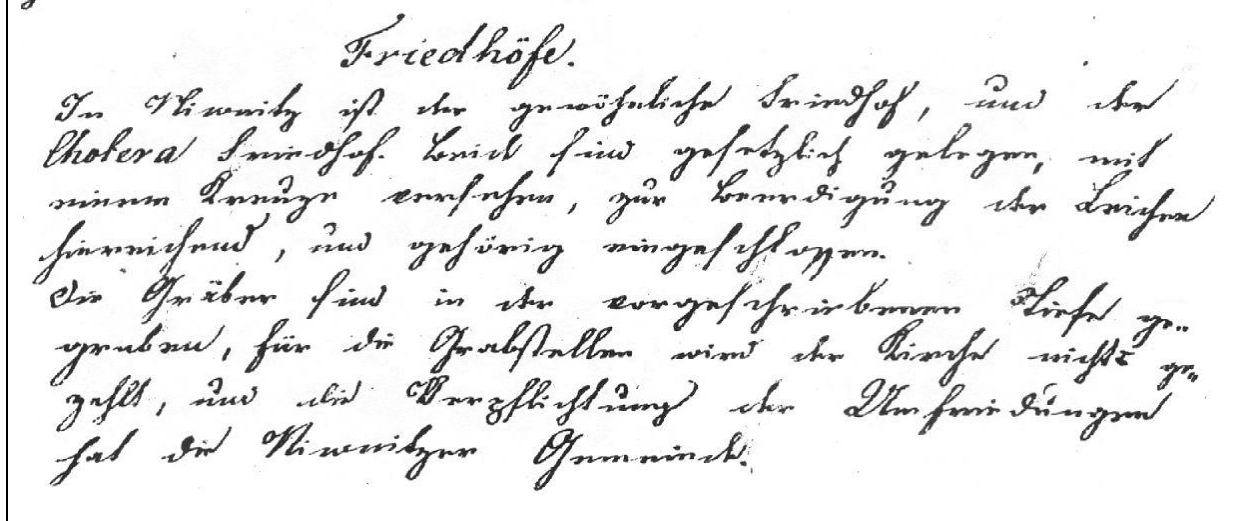 Friedhöfe.
In Niwnitz ist der gewöhnliche Friedhof, und der
Cholera Friedhof. Beide sind gesetzlich gelegen, mit
einem Kreuze versehen, zur Beerdigung der Leichen
hinreichend, und gehörig eingeschlossen.
Die Gräber sind in der vorgeschriebenen Tiefe ge-
graben, für die Grabstellen wird der Kirche nichts ge-
zahlt, und die Verpflichtung der Umfriedungen
hat die Niwnitzer Gemeinde.